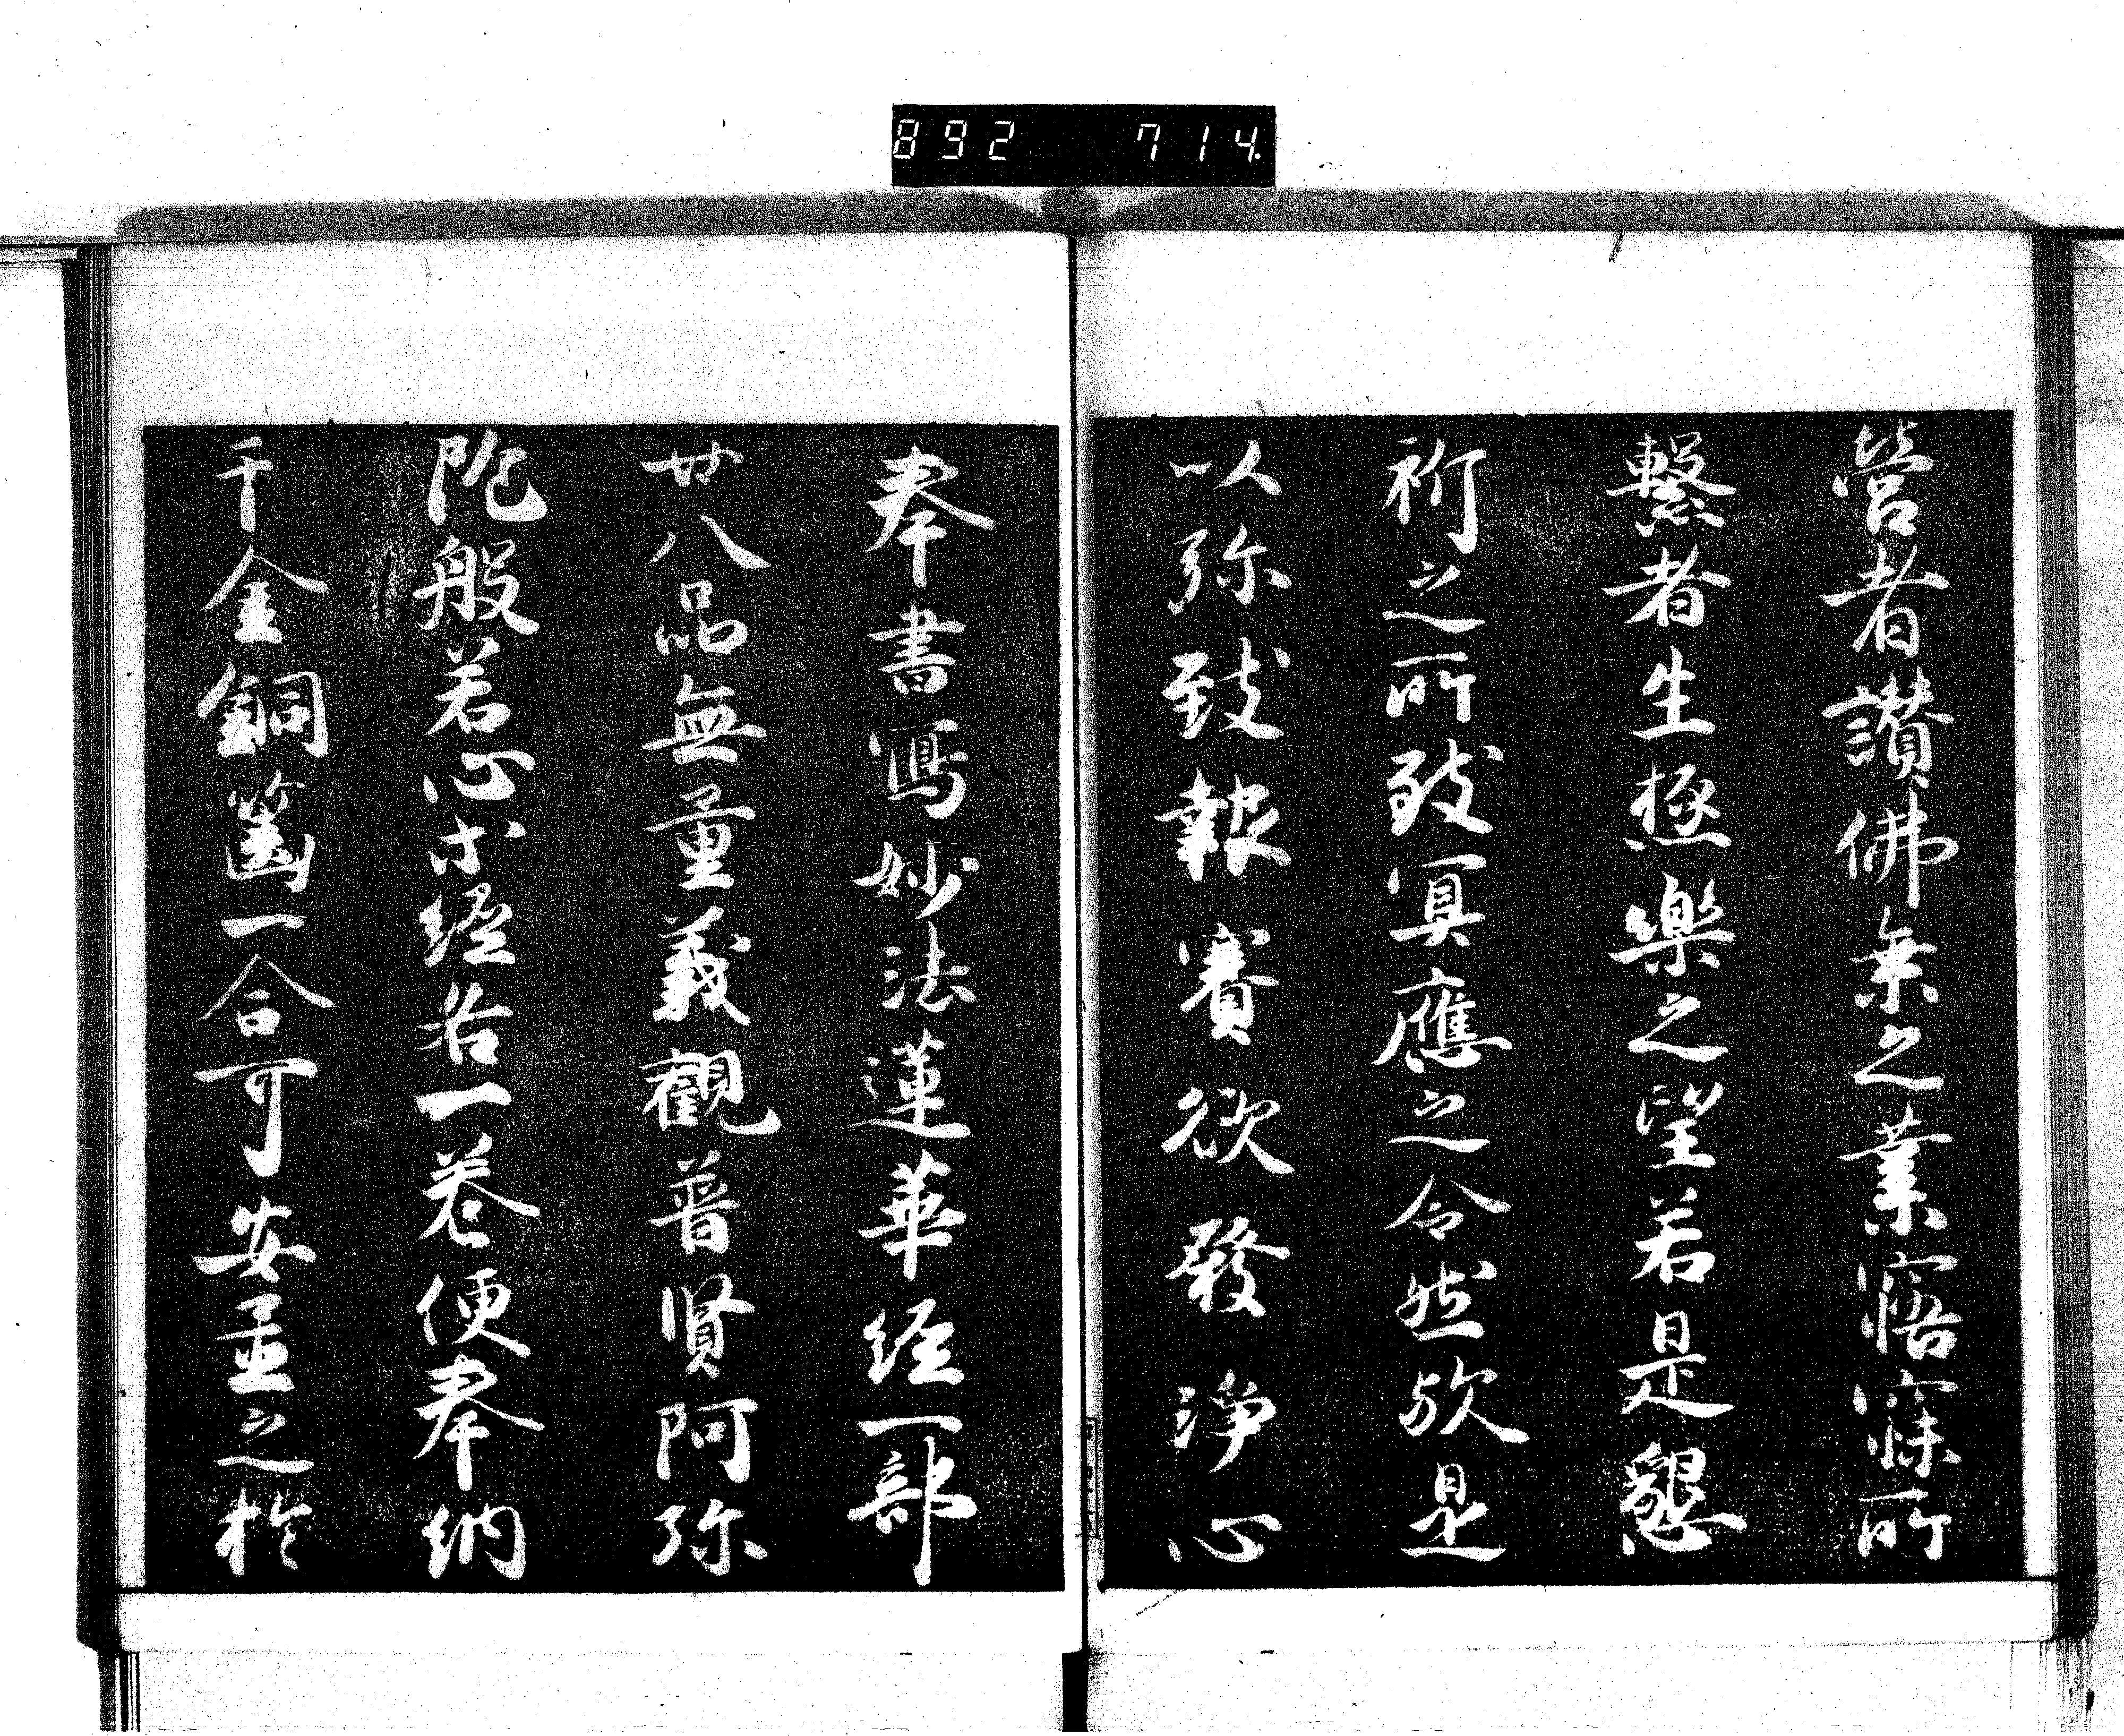 892 714.
營者讃佛乘之業寤寐所
繫者生極樂之望若是懇
祈之所致冥應之令然欤是
以弥致報賽欲發淨心
奉書寫妙法蓮華經一部
廿八品無量義觀普賢阿弥
陀般若心等經各一卷便奉納
于金銅篋一合可安置之於